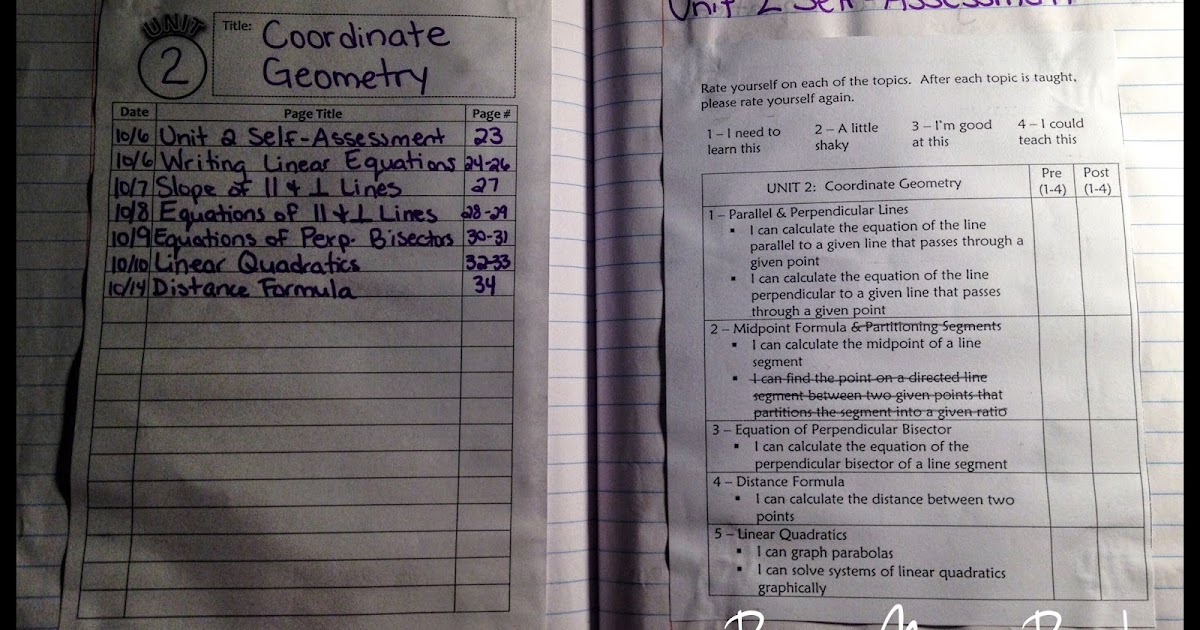 UNIT
2
Title: Coordinate
Geometry
Date Page Title Page #
10/6 Unit 2 Self-Assessment 23
10/6 Writing Linear Equations 24-26
10/7 Slope of || & ⊥ Lines 27
10/8 Equations of || & ⊥ Lines 28-29
10/9 Equations of Perp. Bisectors 30-31
10/10 Linear Quadratics 32-33
10/14 Distance Formula 34
Unit 2 Self-Assessment
Rate yourself on each of the topics. After each topic is taught,
please rate yourself again.
1 – I need to learn this
2 – A little shaky
3 – I'm good at this
4 – I could teach this
UNIT 2: Coordinate Geometry Pre (1-4) Post (1-4)
1 – Parallel & Perpendicular Lines
▪ I can calculate the equation of the line
parallel to a given line that passes through a
given point
▪ I can calculate the equation of the line
perpendicular to a given line that passes
through a given point
2 – Midpoint Formula & Partitioning Segments
▪ I can calculate the midpoint of a line
segment
▪ I can find the point on a directed line
segment between two given points that
partitions the segment into a given ratio
3 – Equation of Perpendicular Bisector
▪ I can calculate the equation of the
perpendicular bisector of a line segment
4 – Distance Formula
▪ I can calculate the distance between two
points
5 – Linear Quadratics
▪ I can graph parabolas
▪ I can solve systems of linear quadratics
graphically